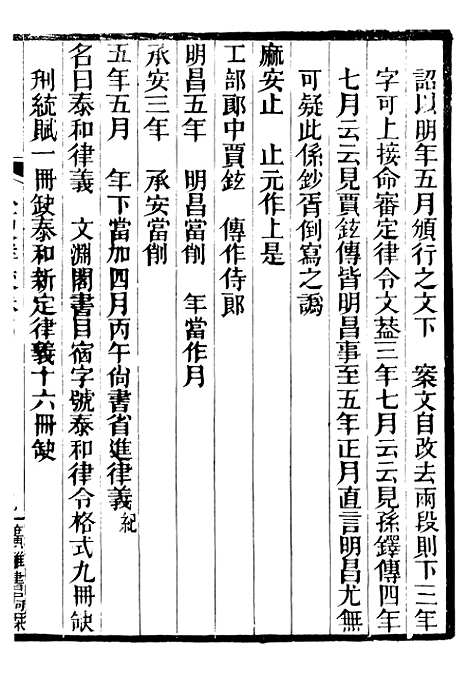 詔以明年五月頒行之文下　案文自改去兩段則下三年
字可上接命審定律令文葢三年七月云云見孫鐸傳四年
七月云云見賈鉉傳皆明昌事至五年正月直言明昌尤無
可疑此係鈔胥倒寫之譌
麻安止　止元作上是
工部郞中賈鉉　傳作侍郞
明昌五年　明昌當削　年當作月
承安三年　承安當削
五年五月　年下當加四月丙午尙書省進律義紀
名曰泰和律義　文淵閣書目宿字號泰和律令格式九冊缺
刑統賦一冊缺泰和新定律義十六冊缺
廣雅書局栞